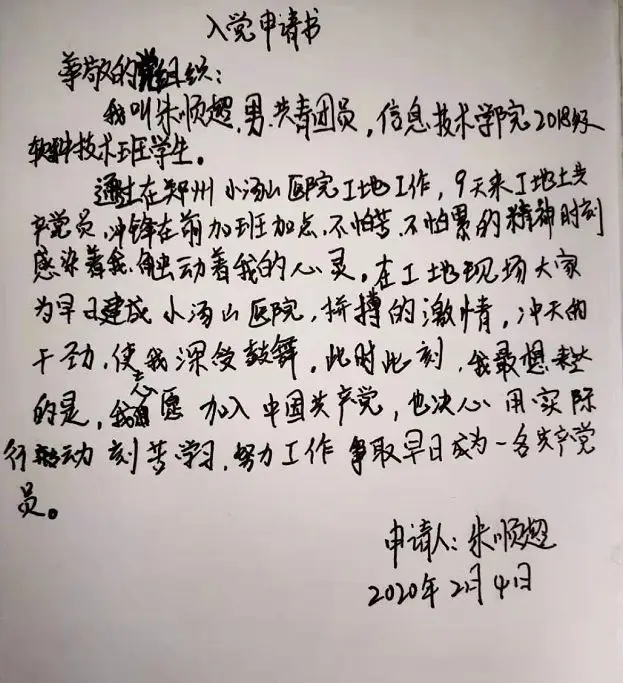 入党申请书
尊敬的党组织：
我叫朱顺超，男，共青团员，信息技术学院2018级
软件技术班学生。
通过在郑州小汤山医院工地工作，9天来工地上共
产党员，冲锋在前加班加点、不怕苦、不怕累的精神时刻
感染着我、触动着我的心灵。在工地现场大家
为早日建成小汤山医院，拼搏的激情，冲天的
干劲，使我深受鼓舞。此时此刻，我最想
的是，我志愿加入中国共产党，也决心用实际
行动刻苦学习，努力工作争取早日成为一名共产党
员。
申请人：朱顺超
2020年2月4日